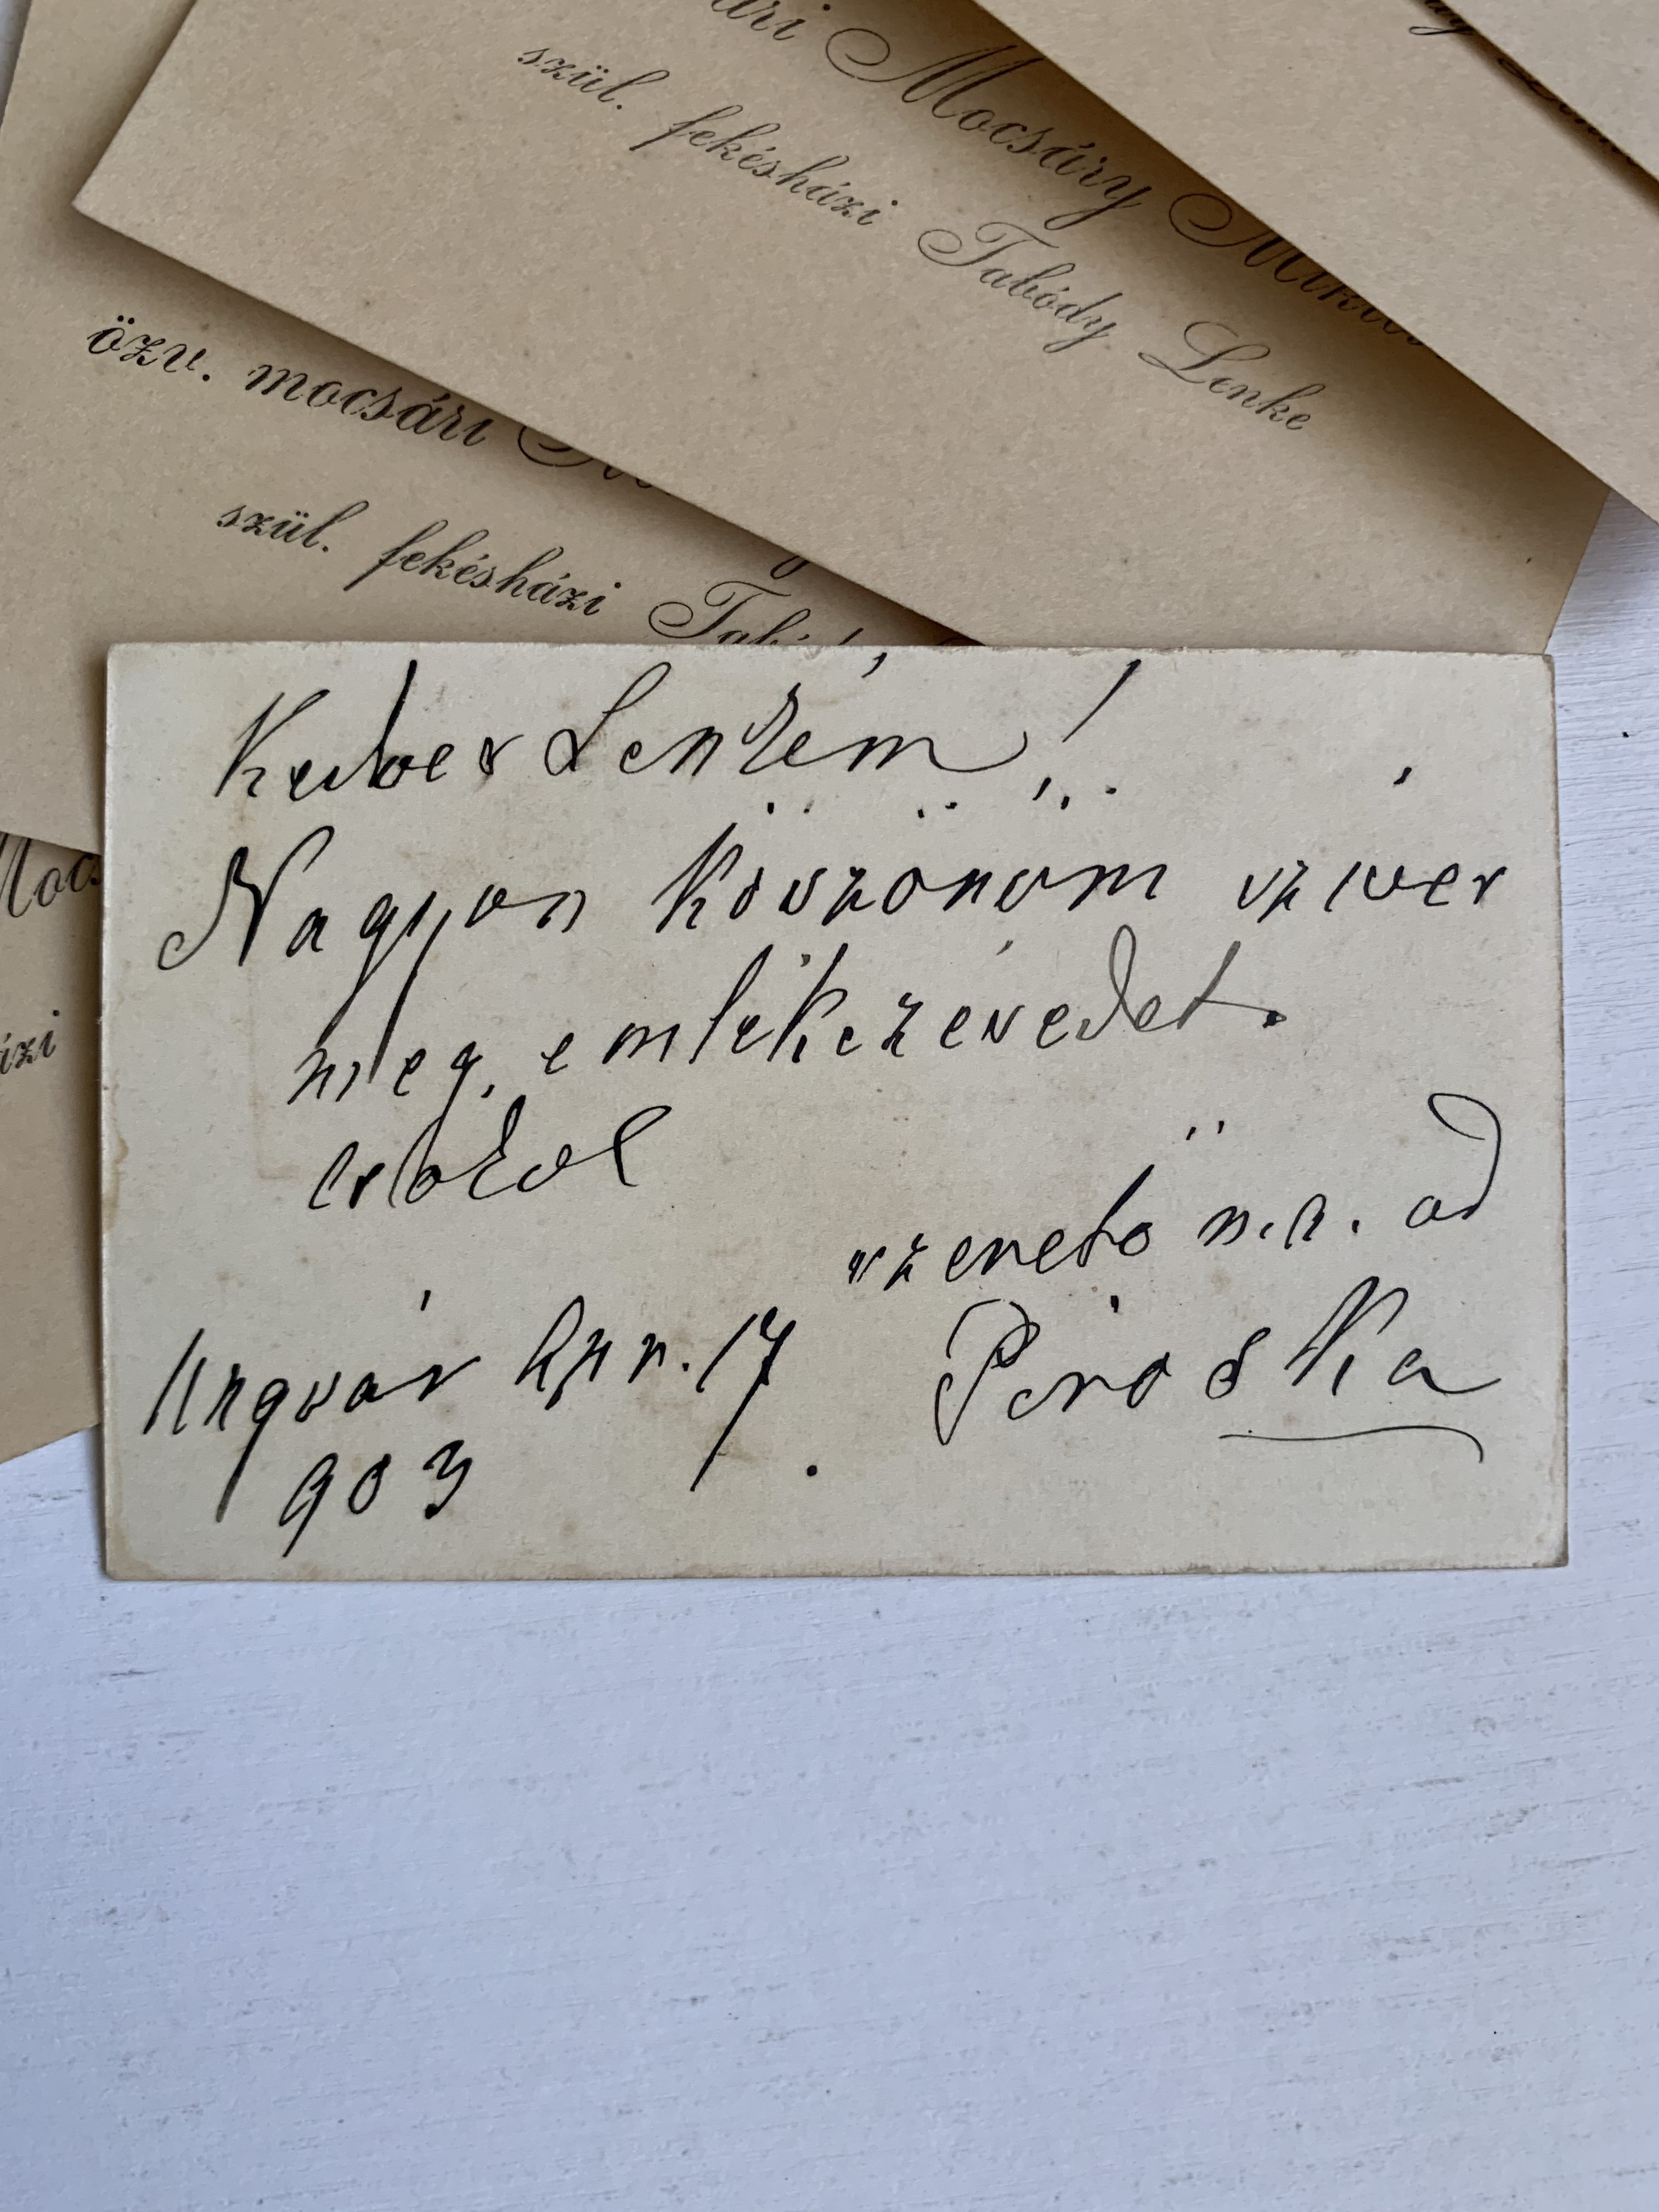 Mocsáry
szül. fekésházi Tabódy Lenke
özv. mocsári
szül. fekésházi
ázi
Kedves Lenkém!
Nagyon köszönöm szíves
meg emlékezésedet.
csókol
szerető n.n. ád
Ungvár Apr. 17 Piroska
903